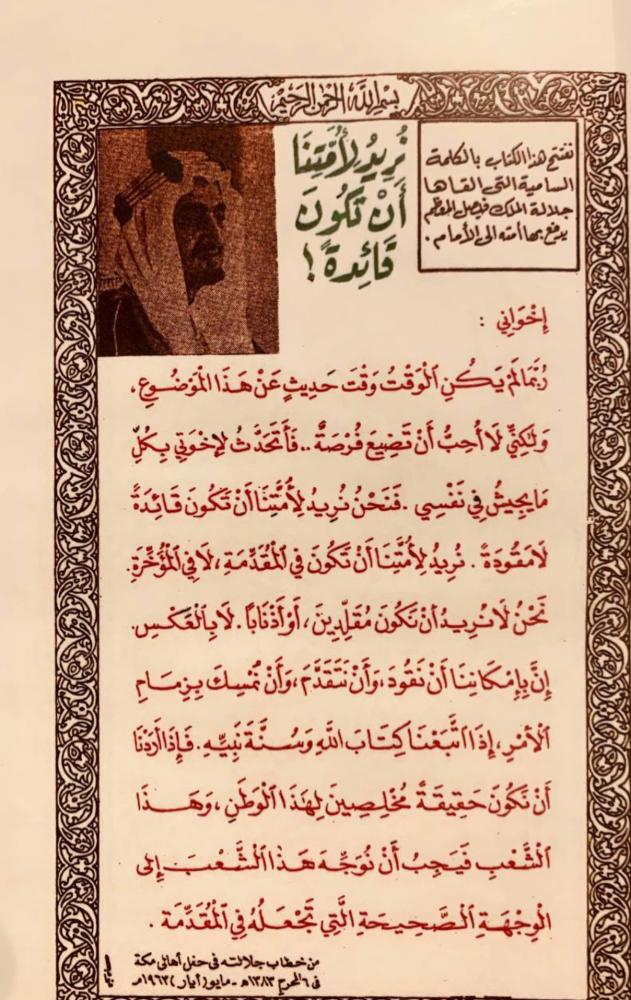 بسم الله الرحمن الرحيم
نفتتح هذا الكتاب بالكلمة
السامية التي القاها
جلالة الملك فيصل المعظم
يدفع بها أمته الى الأمام.
نُرِيدُ لِأُمَّتِنَا
أَنْ تَكُونَ
قَائِدَةً!
إِخْوَانِي :
رُبَّمَا لَمْ يَكُنِ الْوَقْتُ وَقْتَ حَدِيثٍ عَنْ هَذَا الْمَوْضُوعِ،
وَلَكِنِّي لَا أُحِبُّ أَنْ تَضِيعَ فُرْصَةٌ .. فَأَتَحَدَّثُ لِإِخْوَتِي بِكُلِّ
مَا يَجِيشُ فِي نَفْسِي . فَنَحْنُ نُرِيدُ لِأُمَّتِنَا أَنْ تَكُونَ قَائِدَةً
لَا مَقُودَةً . نُرِيدُ لِأُمَّتِنَا أَنْ تَكُونَ فِي الْمُقَدِّمَةِ، لَا فِي الْمُؤَخِّرَةِ.
نَحْنُ لَا نُرِيدُ أَنْ نَكُونَ مُقَلِّدِينَ، أَوْ أَذْنَابًا . لَا بِالْعَكْسِ.
إِنَّ بِإِمْكَانِنَا أَنْ نَقُودَ، وَأَنْ نَتَقَدَّمَ، وَأَنْ نُمْسِكَ بِزِمَامِ
الْأَمْرِ، إِذَا اتَّبَعْنَا كِتَابَ اللهِ وَسُنَّةَ نَبِيِّهِ . فَإِذَا أَرَدْنَا
أَنْ نَكُونَ حَقِيقَةً مُخْلِصِينَ لِهَذَا الْوَطَنِ، وَهَذَا
الشَّعْبِ فَيَجِبُ أَنْ نُوَجِّهَ هَذَا الشَّعْبَ إِلَى
الْوِجْهَةِ الصَّحِيحَةِ الَّتِي تَجْعَلُهُ فِي الْمُقَدِّمَةِ .
من خطاب جلالته في حفل أهالي مكة
في ٦ المحرم ١٣٨٣هـ - مايو (أيار) ١٩٦٣م